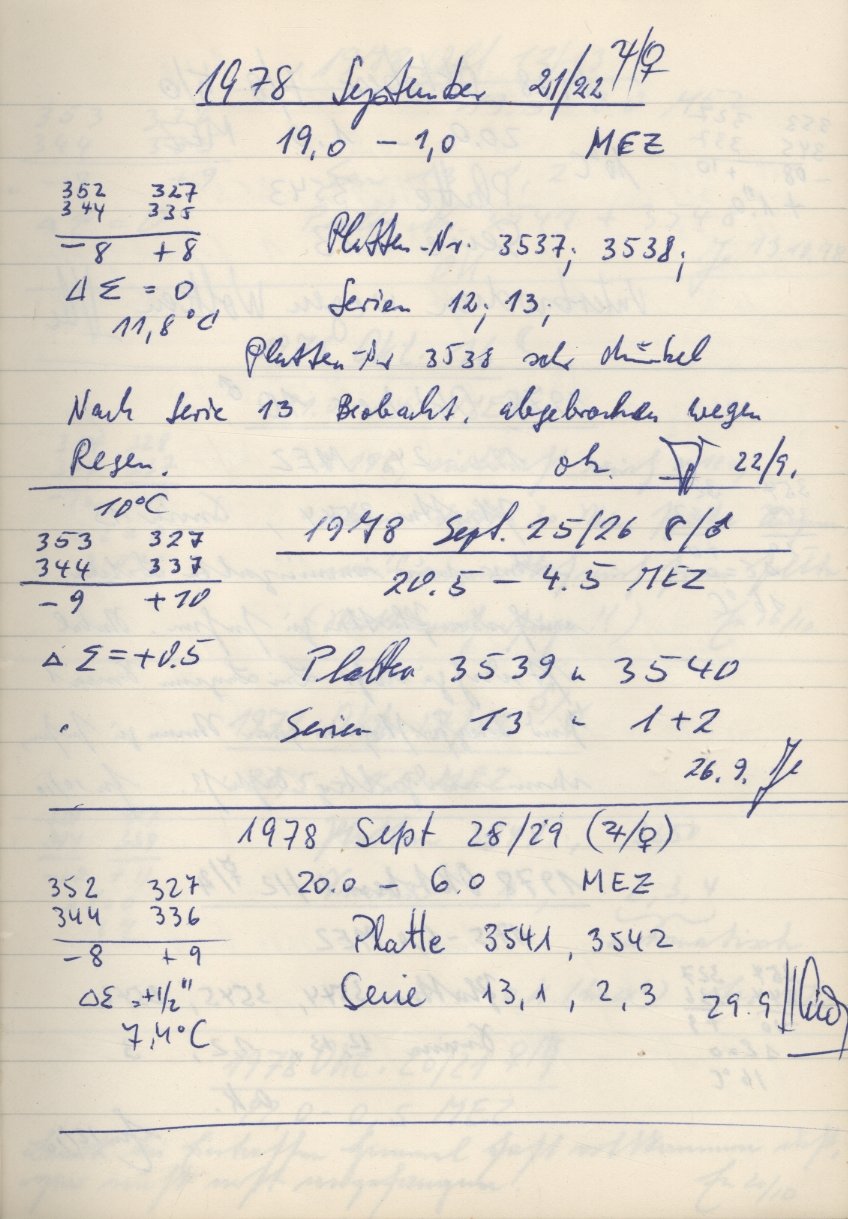 1978 September 21/22 ♃/♀
19,0 – 1,0 MEZ
352 327
344 335
– 8 + 8
Δ Σ = 0
11,8 °C
Platten-Nr. 3537; 3538;
Serien 12; 13;
Platten-Nr 3538 sehr dunkel
Nach Serie 13 Beobacht. abgebrochen wegen
Regen. 22/9.
10°C
1978 Sept. 25/26 ☾/♂
353 327
344 337
– 9 + 10
20.5 – 4.5 MEZ
Δ Σ = +0.5
Platten 3539 u 3540
Serien 13 – 1+2
26.9.
1978 Sept 28/29 (♃/♀)
352 327
344 336
– 8 + 9
20.0 – 6.0 MEZ
Platte 3541, 3542
ΔΣ = +1/2"
Serie 13, 1, 2, 3 29.9
7,4°C